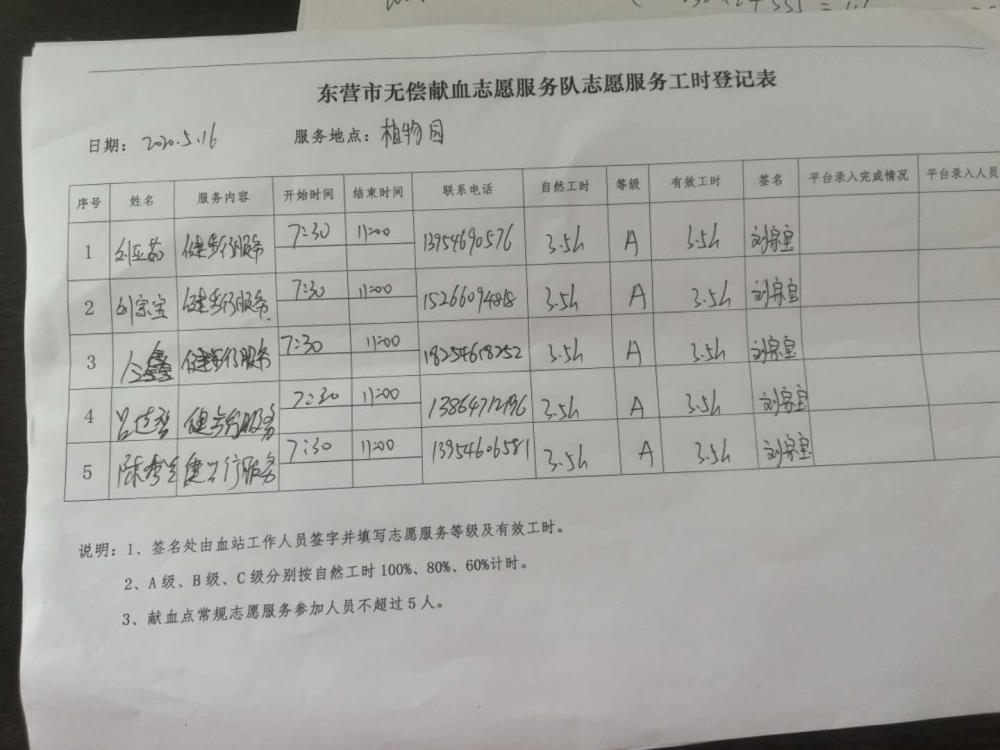 东营市无偿献血志愿服务队志愿服务工时登记表
日期： 2020.5.16 服务地点：植物园
序号 姓名 服务内容 开始时间 结束时间 联系电话 自然工时 等级 有效工时 签名 平台录入完成情况 平台录入人员
1 刘亚茹 健步行服务 7:30 11:00 13954690576 3.5h A 3.5h 刘宗宝
2 刘宗宝 健步行服务 7:30 11:00 15266094818 3.5h A 3.5h 刘宗宝
3 健步行服务 7:30 11:00 18254618252 3.5h A 3.5h 刘宗宝
4 健步行服务 7:30 11:00 13864712196 3.5h A 3.5h 刘宗宝
5 健步行服务 7:30 11:00 13954606581 3.5h A 3.5h 刘宗宝
说明：1、签名处由血站工作人员签字并填写志愿服务等级及有效工时。
2、A 级、B 级、C 级分别按自然工时 100%、80%、60%计时。
3、献血点常规志愿服务参加人员不超过 5 人。